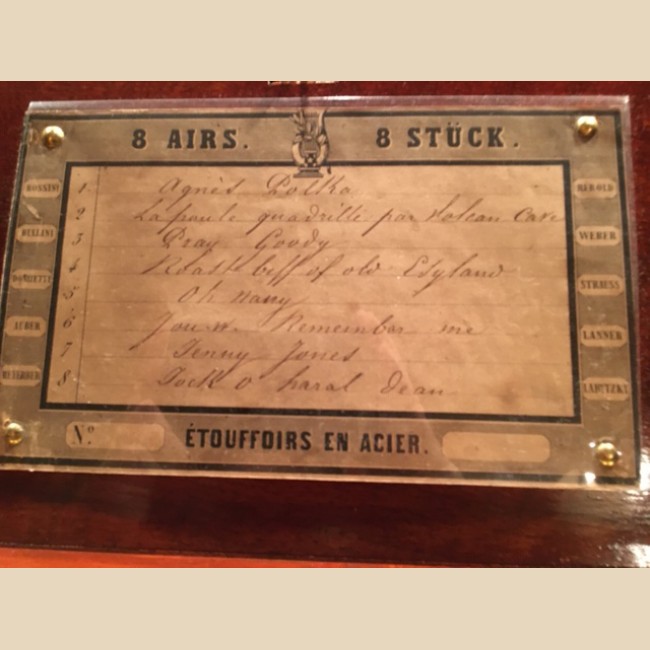 8 AIRS. 8 STÜCK.
ROSSINI
BELLINI
DONIZETTI
AUBER
HEROLD
WEBER
STRAUSS
LANNER
LABITZKY
1. Agnès Polka
2 La poule quadrille par
3 Pray Goody
4 Roast biff of old England
5 Oh nany
6 You w. Remember me
7 Jenny Jones
8 Jock o haral dean
N.º
ÉTOUFFOIRS EN ACIER.